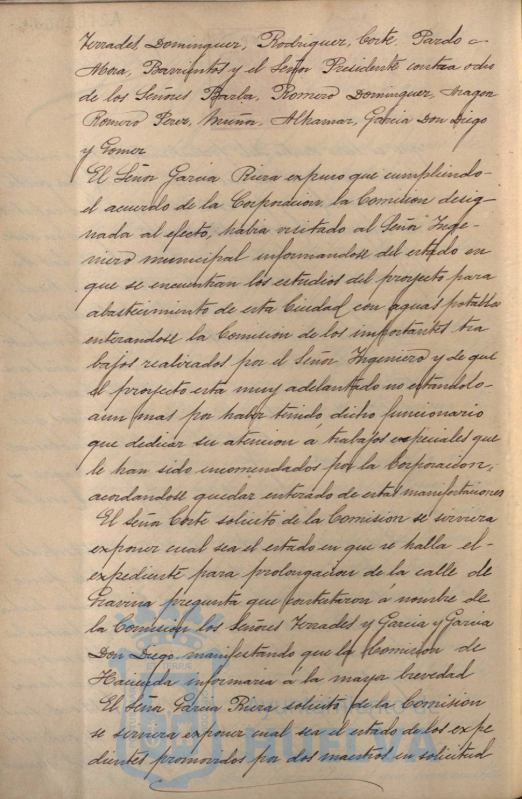 Terrades, Dominguez, Rodriguez, Corte, Pardo
Mora, Barrientos y el Señor Presidente contra ocho
de los Señores Barba, Romero Dominguez, Aragon
Romero Perez, Muñoz, Alkamar, Garcia Don Diego
y Gomez
El Señor Garcia Riera expuso que cumpliendo-
el acuerdo de la Corporacion, la Comision desig-
nada al efecto, habia visitado al Señor Inge-
niero municipal informandose del estado en
que se encuentran los estudios del proyecto para
abastecimiento de esta Ciudad con aguas potables
enterandose la Comision de los importantes tra
bajos realizados por el Señor Ingeniero y de que
el proyecto esta muy adelantado no estandolo-
aun mas por haber tenido dicho funcionario
que dedicar su atencion á trabajos especiales que
le han sido encomendados por la Corporacion,
acordandose quedar enterado de estas manifestaciones
El Señor Corte solicitó de la Comision se sirviera
exponer cual sea el estado en que se halla el-
expediente para prolongacion de la calle de
Gravina pregunta que contestaron á nombre de
la Comision los Señores Terrades y Garcia y Garcia
Don Diego manifestando que la Comision de
Hacienda informaria á la mayor brevedad
El Señor Garcia Riera solicitó de la Comision
se sirviera exponer cual sea el estado de los expe
dientes promovidos por dos maestros en solicitud
HUELVA